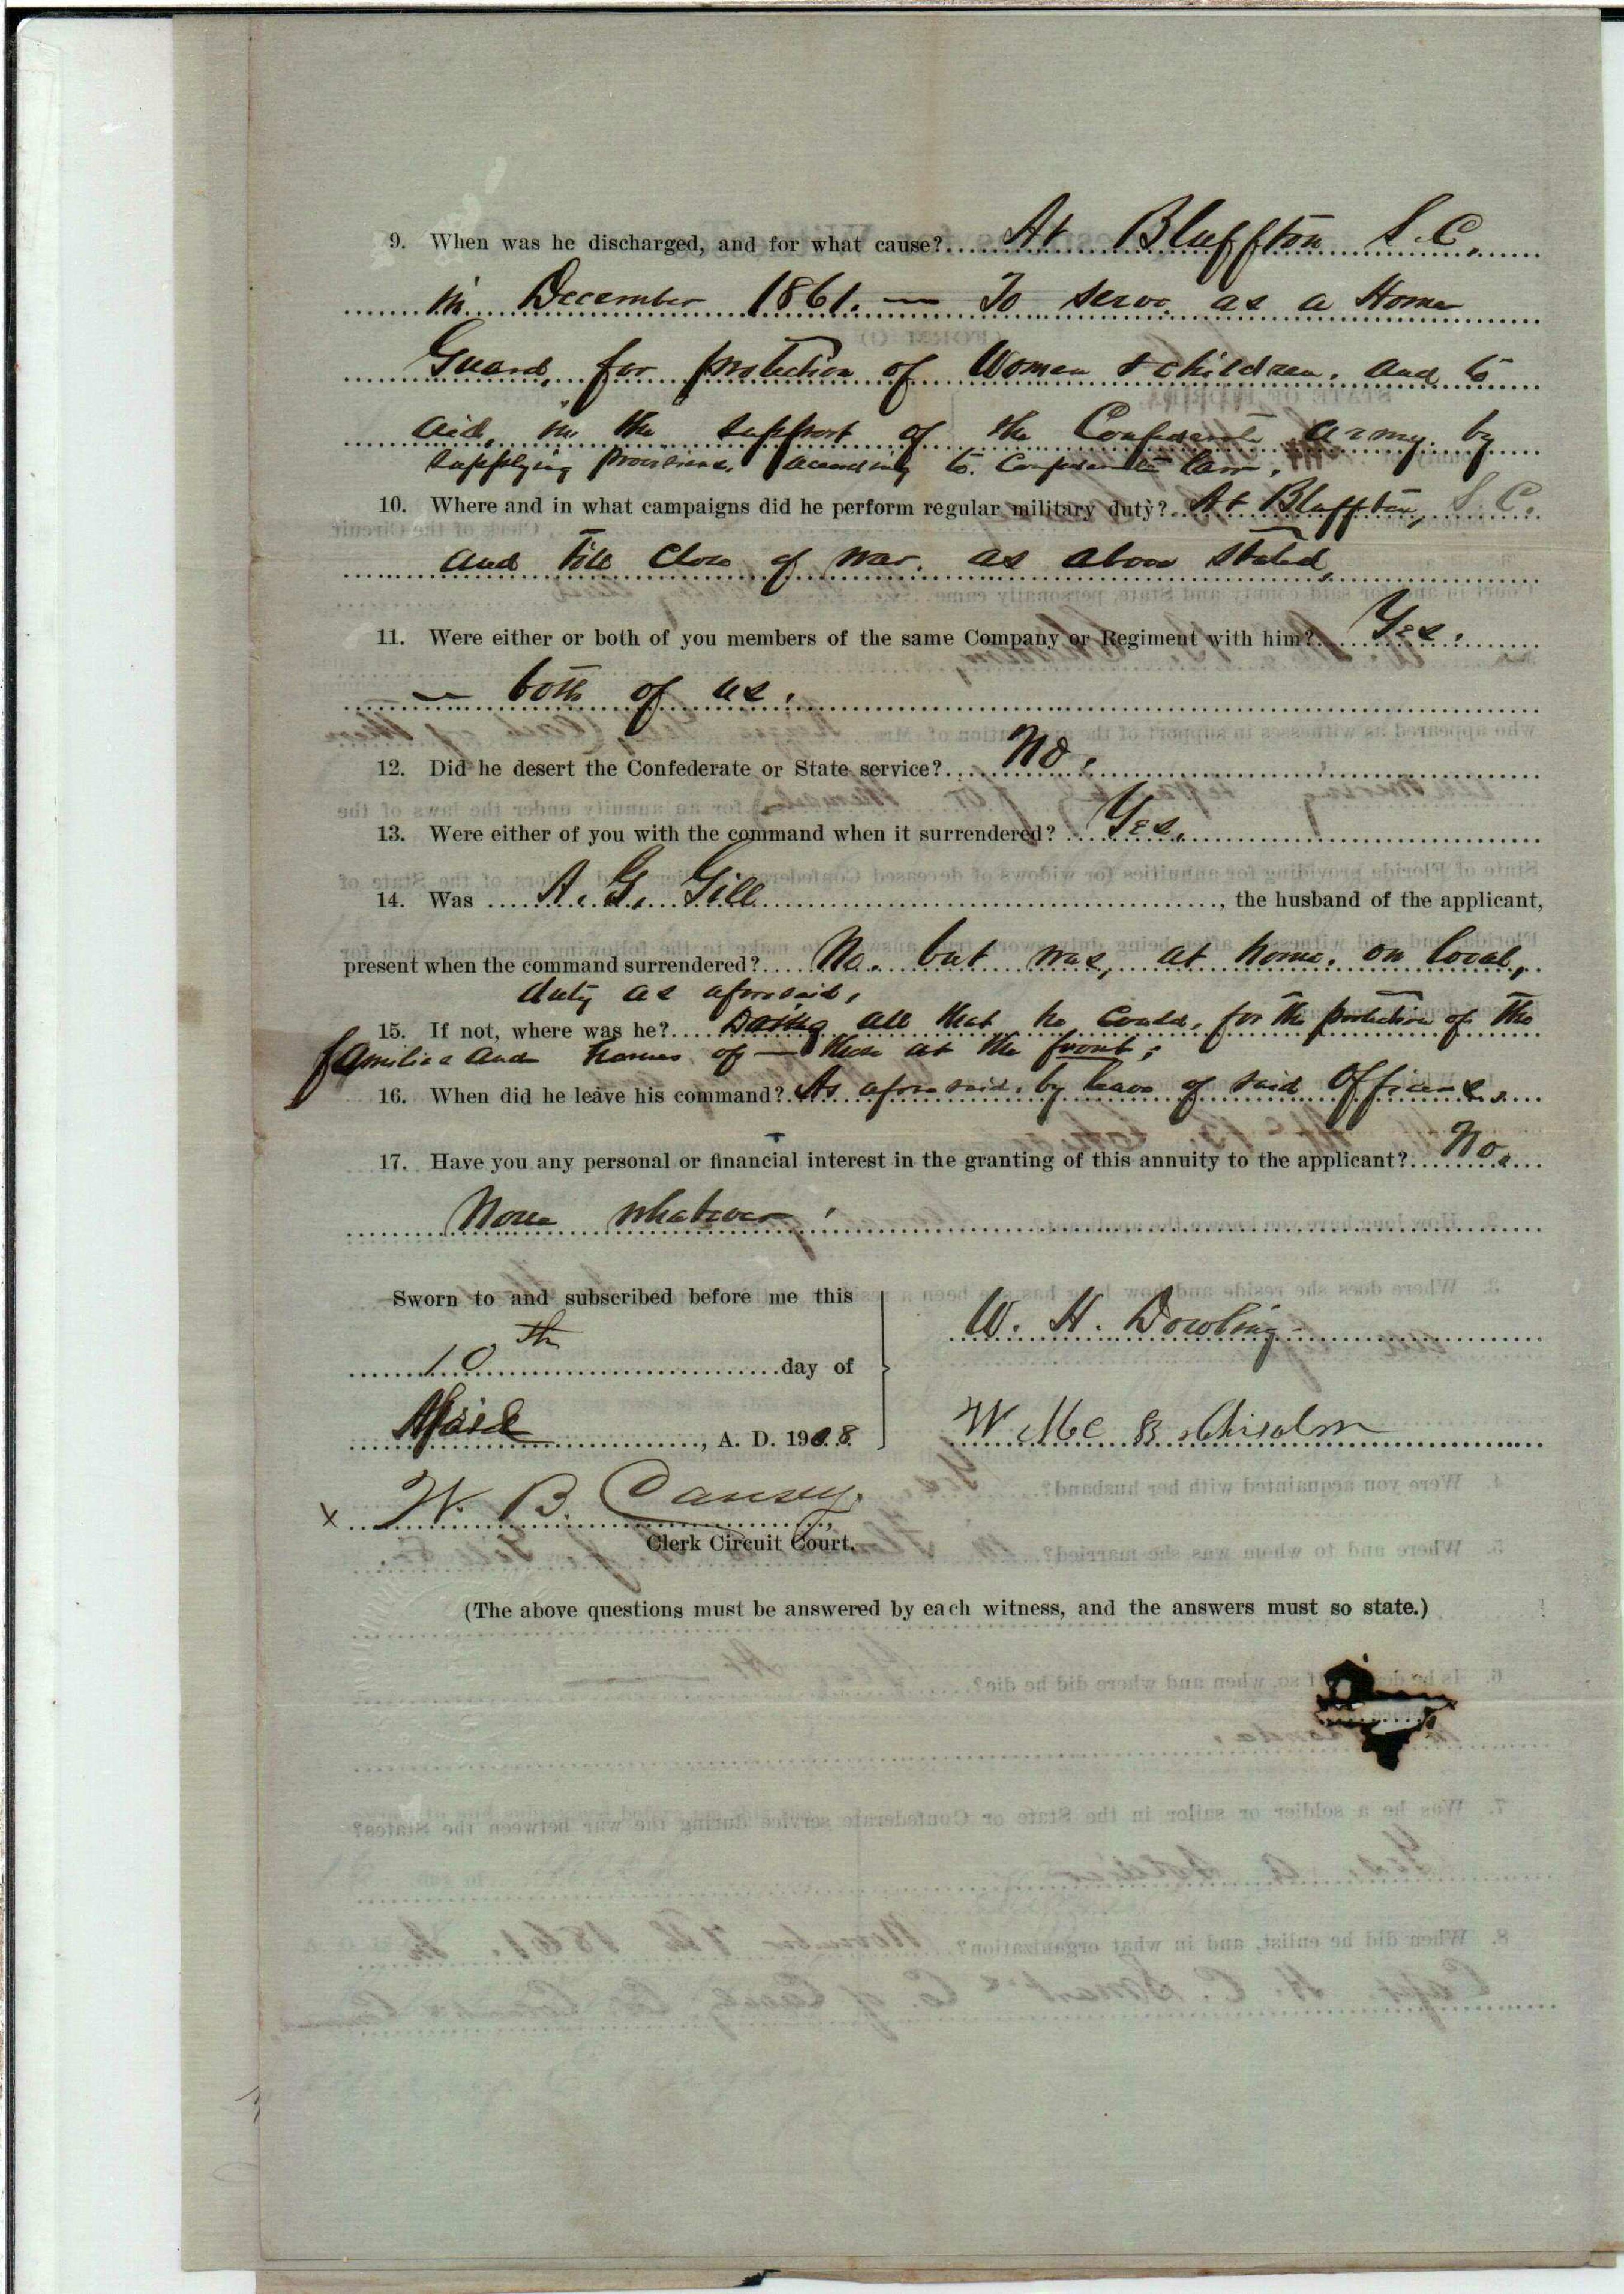 9. When was he discharged, and for what cause? At Bluffton S.C.
in December 1861. — To serve as a Home
Guard, for protection of Women & children. and to
aid, in the support of the Confederate army. by
supplying provisions, according to. Confederate law.
10. Where and in what campaigns did he perform regular military duty? At Bluffton, S.C.
and till close of war. as above stated,
11. Were either or both of you members of the same Company or Regiment with him? Yes.
— both of us.
12. Did he desert the Confederate or State service? No.
13. Were either of you with the command when it surrendered? Yes.
14. Was A. G. Gill, the husband of the applicant,
present when the command surrendered? No. but was, at home. on local,
duty as aforesaid,
15. If not, where was he? Doing all that he could, for the protection of the
families and homes of — those at the front;
16. When did he leave his command? As aforesaid. by leave of said Officers.
17. Have you any personal or financial interest in the granting of this annuity to the applicant? No.
None whatever.
Sworn to and subscribed before me this
10th day of
April, A. D. 1908.
W. H. Dowling
W McB Chisolm
x W. B. Causey.
Clerk Circuit Court.
(The above questions must be answered by each witness, and the answers must so state.)